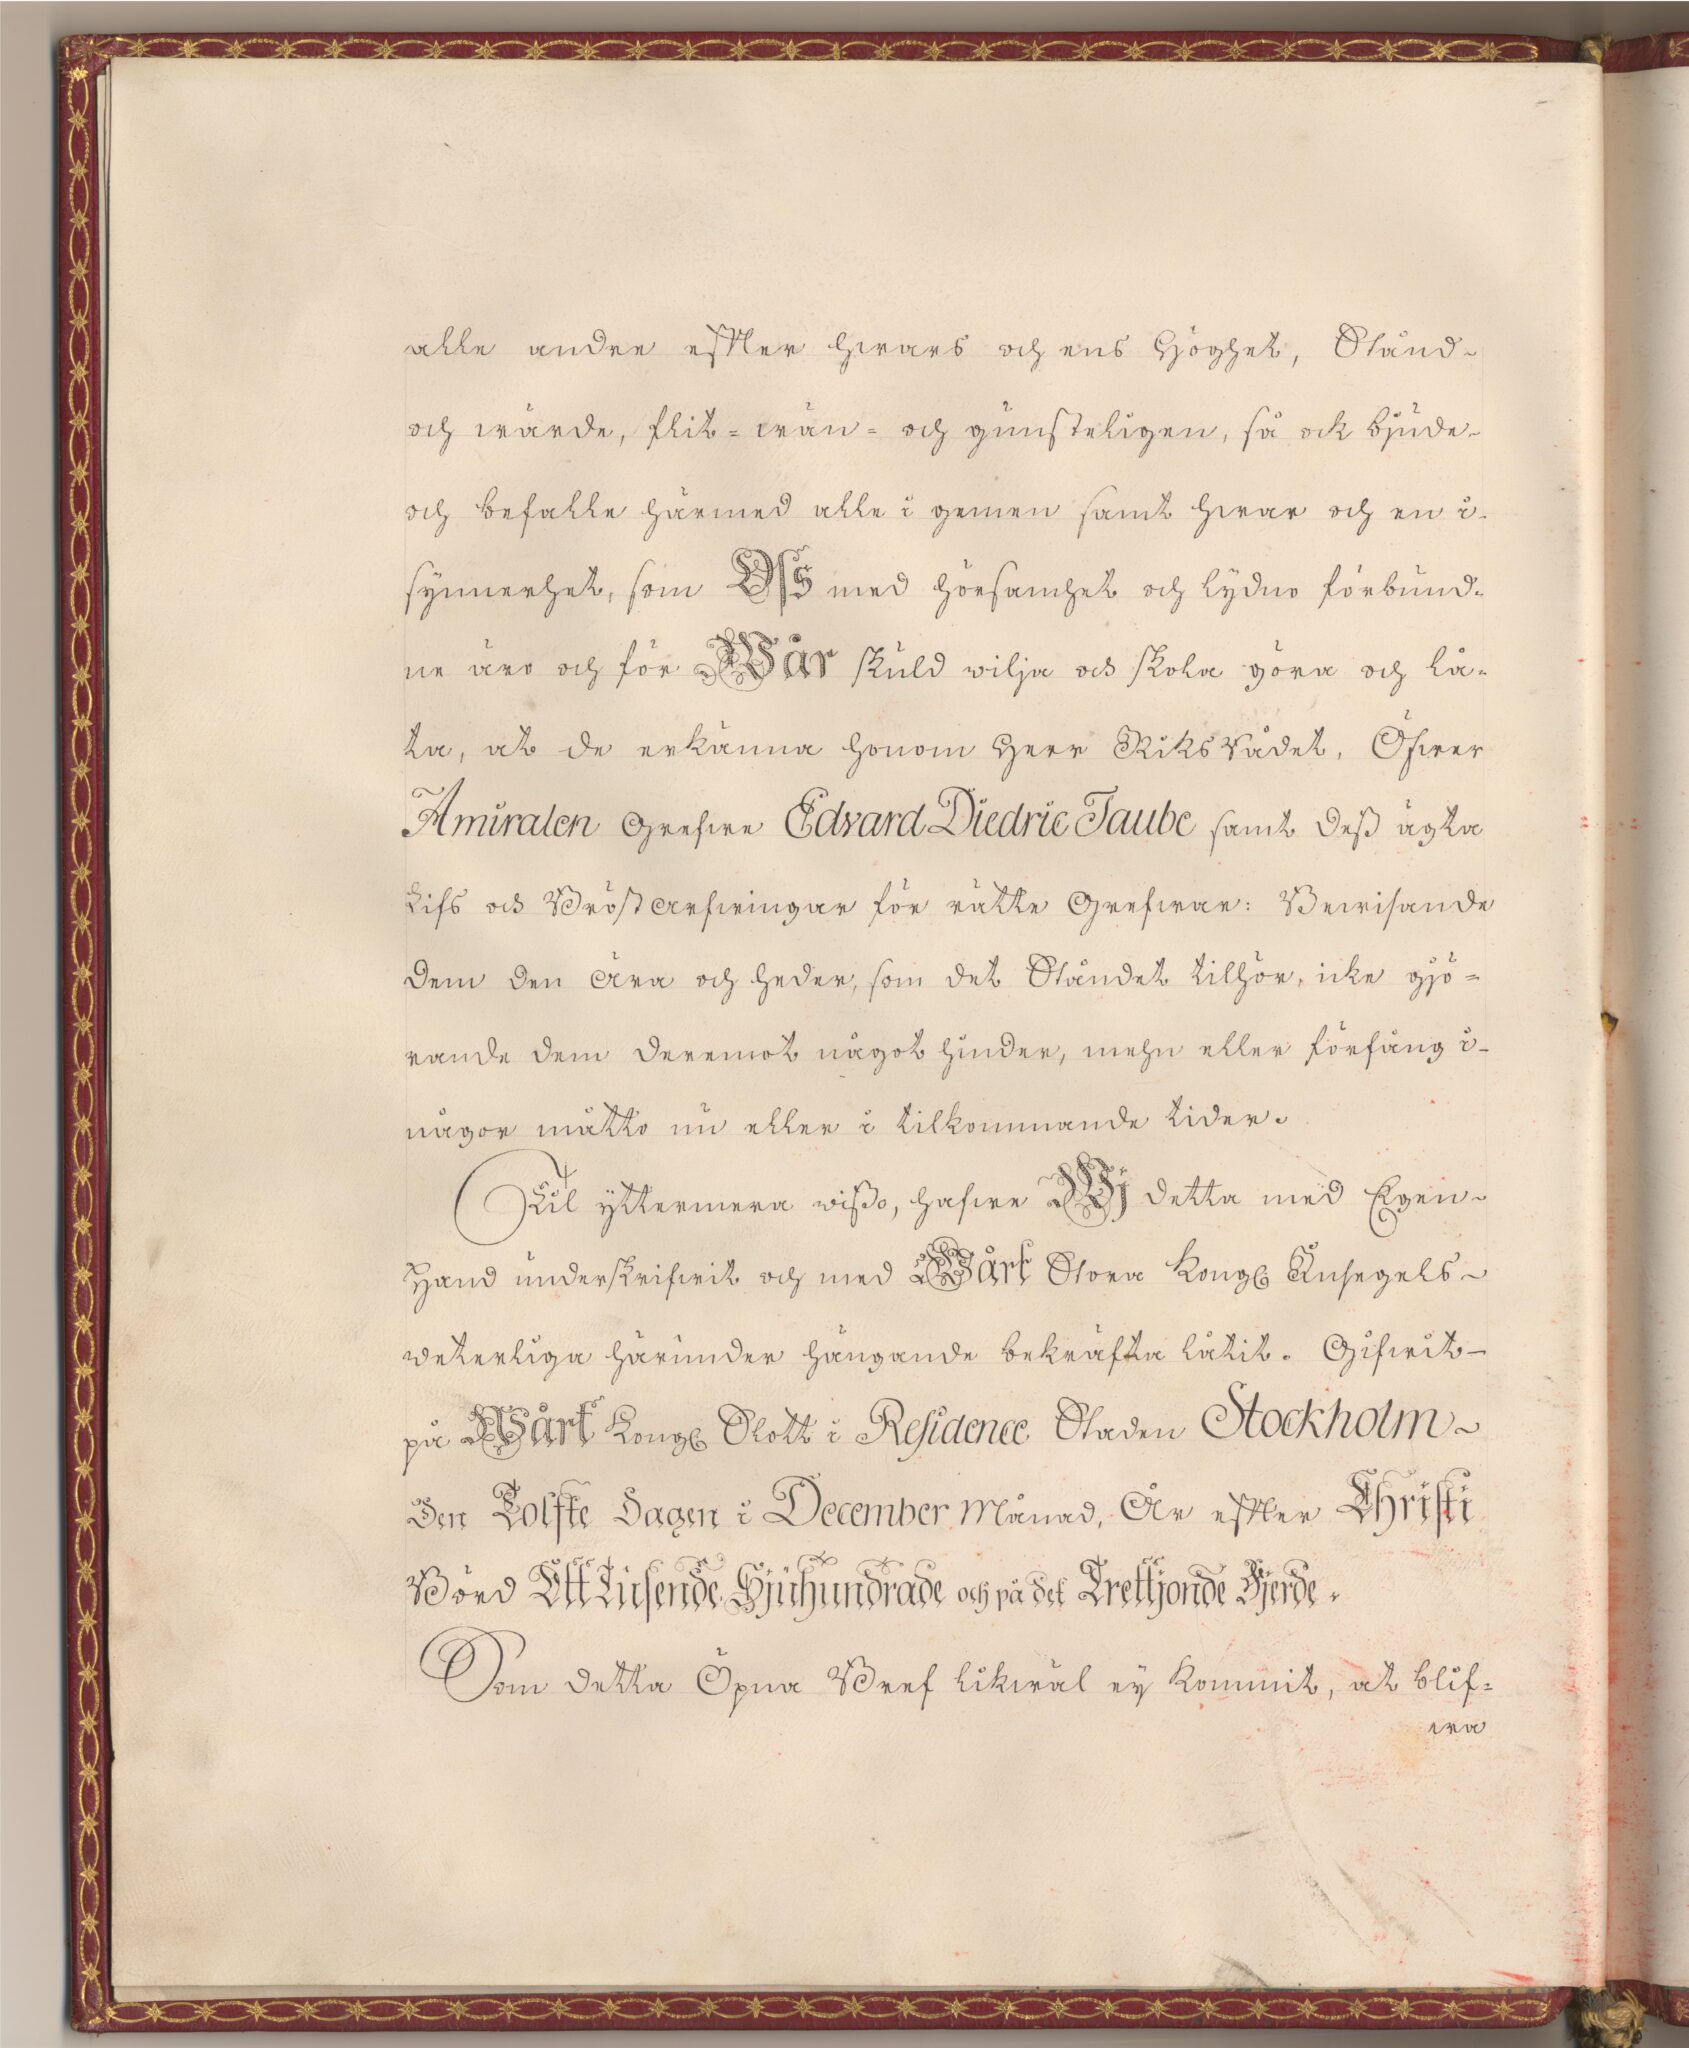 alle andre effter hwars och ens Höghet, Stånd-
och wärde, flit- wän- och gunsteligen, så ock bjude-
och befalle härmed alle i gemen samt hwar och en i-
synnerhet, som Oss med hörsamhet och lydno förbund-
ne äro och för Wår skuld wilja och skola göra och lå-
ta, at de erkänna honom Herr Riks Rådet, Öfwer
Amiralen Grefwe Edvard Diedric Taube samt deß ägta
Lifs och Bröst Arfwingar för rätte Grefwar: Bewisande
dem den Ära och heder, som det Ståndet tilhör, icke gjö-
rande dem deremot något hinder, mehn eller förfång i-
någor måtto nu eller i tilkommande tider.
Til yttermera wißo, hafwe Wj detta med Egen-
Hand underskrifwit och med Wårt Stora Kongl Insegels-
weterliga härunder hängande bekräfta låtit. Gifwit-
på Wårt Kongl Slott i Residence Staden Stockholm-
den Tolfte Dagen i December Månad, År effter Christi
Börd Ett Tusende Sjuhundrade och på det Trettjonde Fjerde.
Som detta Öpna Bref likwäl ey kommit, at blif-
wa